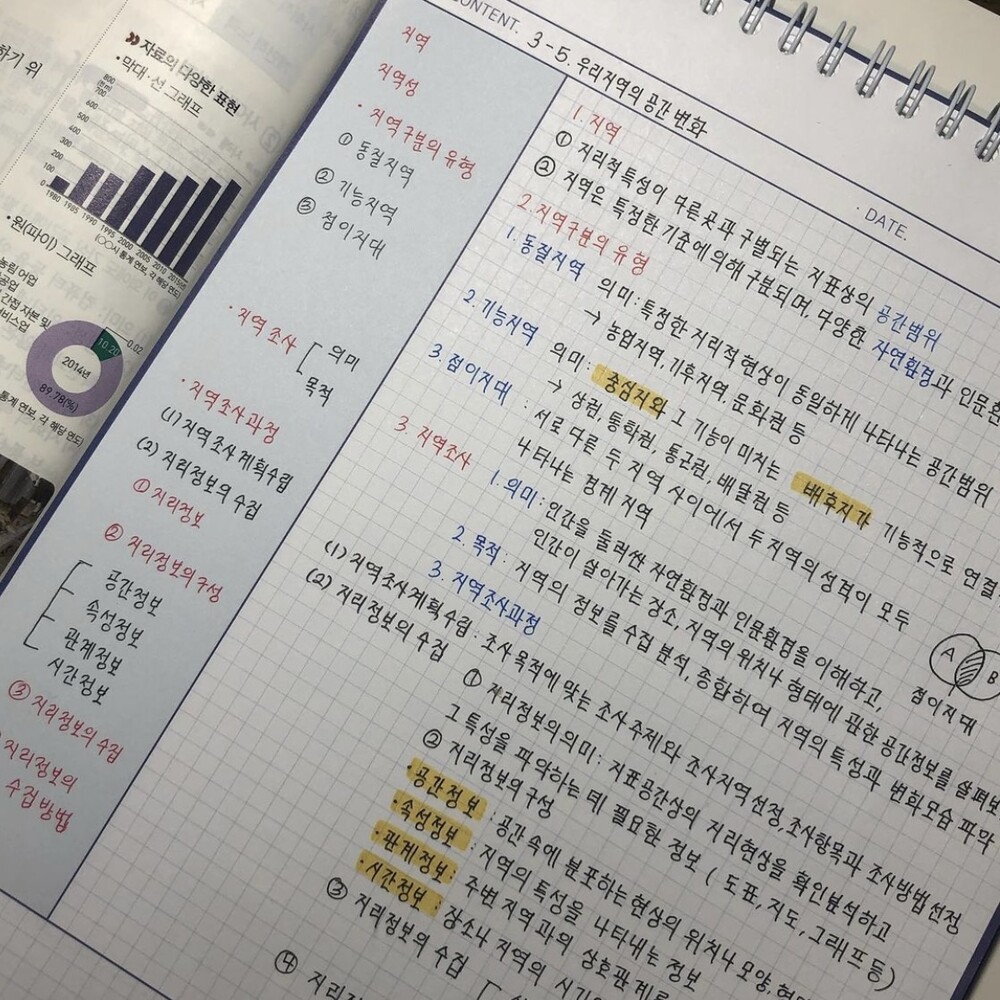 하기 위
자료의 다양한 표현
• 막대·선 그래프
800
(천m)
700
600
500
400
300
200
100
0
1980 1985 1990 1995 2000 2005 2010 2015년
(○○시 통계 연보, 각 해당 연도)
• 원(파이) 그래프
농림 어업
공업
간접 자본 및
비스업
0.02
10.20
2014년
89.78(%)
통계 연보, 각 해당 연도)
CONTENT. 3-5. 우리지역의 공간 변화
· DATE.
지역
지역성
· 지역구분의 유형
① 동질지역
② 기능지역
③ 점이지대
· 지역조사 [ 의미
목적
· 지역조사과정
(1) 지역조사계획수립
(2) 지리정보의 수집
① 지리정보
② 지리정보의구성
공간정보
속성정보
관계정보
시간정보
③ 지리정보의 수집
지리정보의
수집방법
1. 지역
① 지리적 특성이 다른곳과 구별되는 지표상의 공간범위
② 지역은 특정한 기준에 의해 구분되며, 다양한 자연환경과 인문환
2. 지역구분의 유형
1. 동질지역 의미 : 특정한 지리적현상이 동일하게 나타나는 공간범위
→ 농업지역, 기후지역, 문화권 등
2. 기능지역 의미 : 중심지와 그 기능이 미치는 배후지가 기능적으로 연결
→ 상권, 통학권, 통근권, 배달권 등
3. 점이지대 : 서로 다른 두 지역 사이에서 두지역의 성격이 모두
나타나는 경계 지역
A B
점이지대
3. 지역조사
1. 의미 : 인간을 둘러싼 자연환경과 인문환경을 이해하고,
인간이 살아가는 장소, 지역의 위치나 형태에 관한 공간정보를 살펴보
2. 목적 : 지역의 정보를 수집 분석, 종합하여 지역의 특성과 변화모습 파악
3. 지역조사과정
(1) 지역조사계획수립 : 조사 목적에 맞는 조사주제와 조사지역 선정, 조사항목과 조사방법 선정
(2) 지리정보의 수집
① 지리정보의의미 : 지표공간상의 지리현상을 확인분석하고
그 특성을 파악하는 데 필요한 정보 ( 도표, 지도, 그래프 등)
② 지리정보의 구성
· 공간정보 : 공간 속에 분포하는 현상의 위치나 모양, 형태
· 속성정보 : 지역의 특성을 나타내는 정보
· 관계정보 : 주변 지역과의 상호관계를
· 시간정보 : 장소나 지역의 시기
③ 지리정보의 수집
④ 지리정